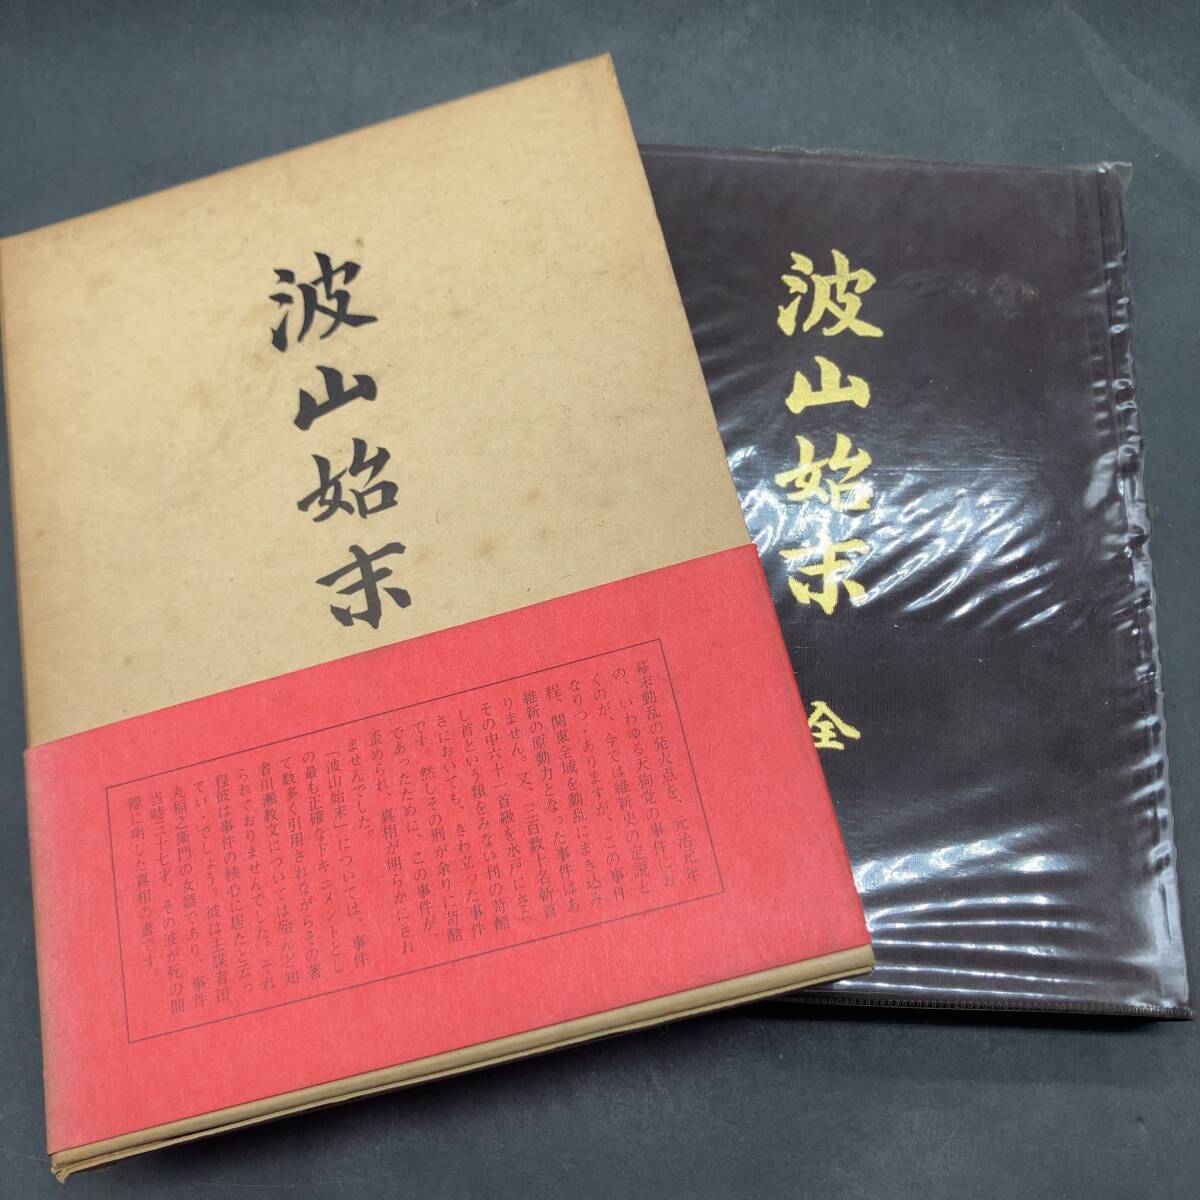 波山始末
波山始末
全
幕末動乱の発火点を、元治元年
の、いわゆる天狗党の事件にお
くのが、今では維新史の定説と
なりつゝありますが、この事件
程、関東全域を動乱にまき込み
維新の原動力となった事件はあ
りません。又、三百数十名斬首
その中六十一首級を水戸にさら
し首という類をみない刑の苛酷
さにおいても、きわ立った事件
です。然しその刑が余りに苛酷
であったために、この事件が、
歪められ、真相が明らかにされ
ませんでした。
「波山始末」については、事件
の最も正確なドキュメントとし
て数多く引用されながらその著
者川瀬教文については殆んど知
られておりませんでした。それ
程彼は事件の核心に居たと云っ
てい、でしょう。彼は主謀者田
丸稲之衛門の女婿であり、事件
当時二十七才、その彼が死の間
際に明した真相の書です。